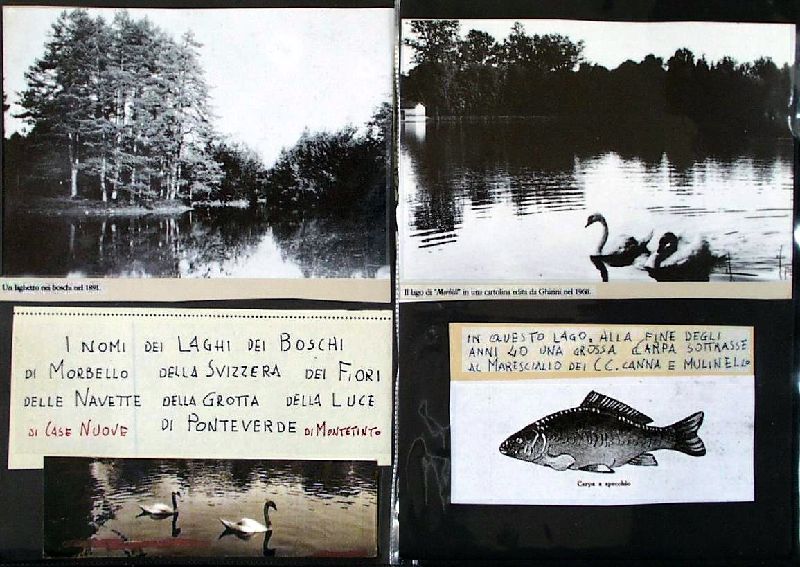 Un laghetto nei boschi nel 1891.
Il lago di "Morbèl" in una cartolina edita da Ghirini nel 1960.
I NOMI DEI LAGHI DEI BOSCHI
DI MORBELLO DELLA SVIZZERA DEI FIORI
DELLE NAVETTE DELLA GROTTA DELLA LUCE
DI CASE NUOVE DI PONTEVERDE DI MONTETINTO
IN QUESTO LAGO, ALLA FINE DEGLI
ANNI 40 UNA GROSSA CARPA SOTTRASSE
AL MARESCIALLO DEI CC. CANNA E MULINELLO
Carpa a specchio